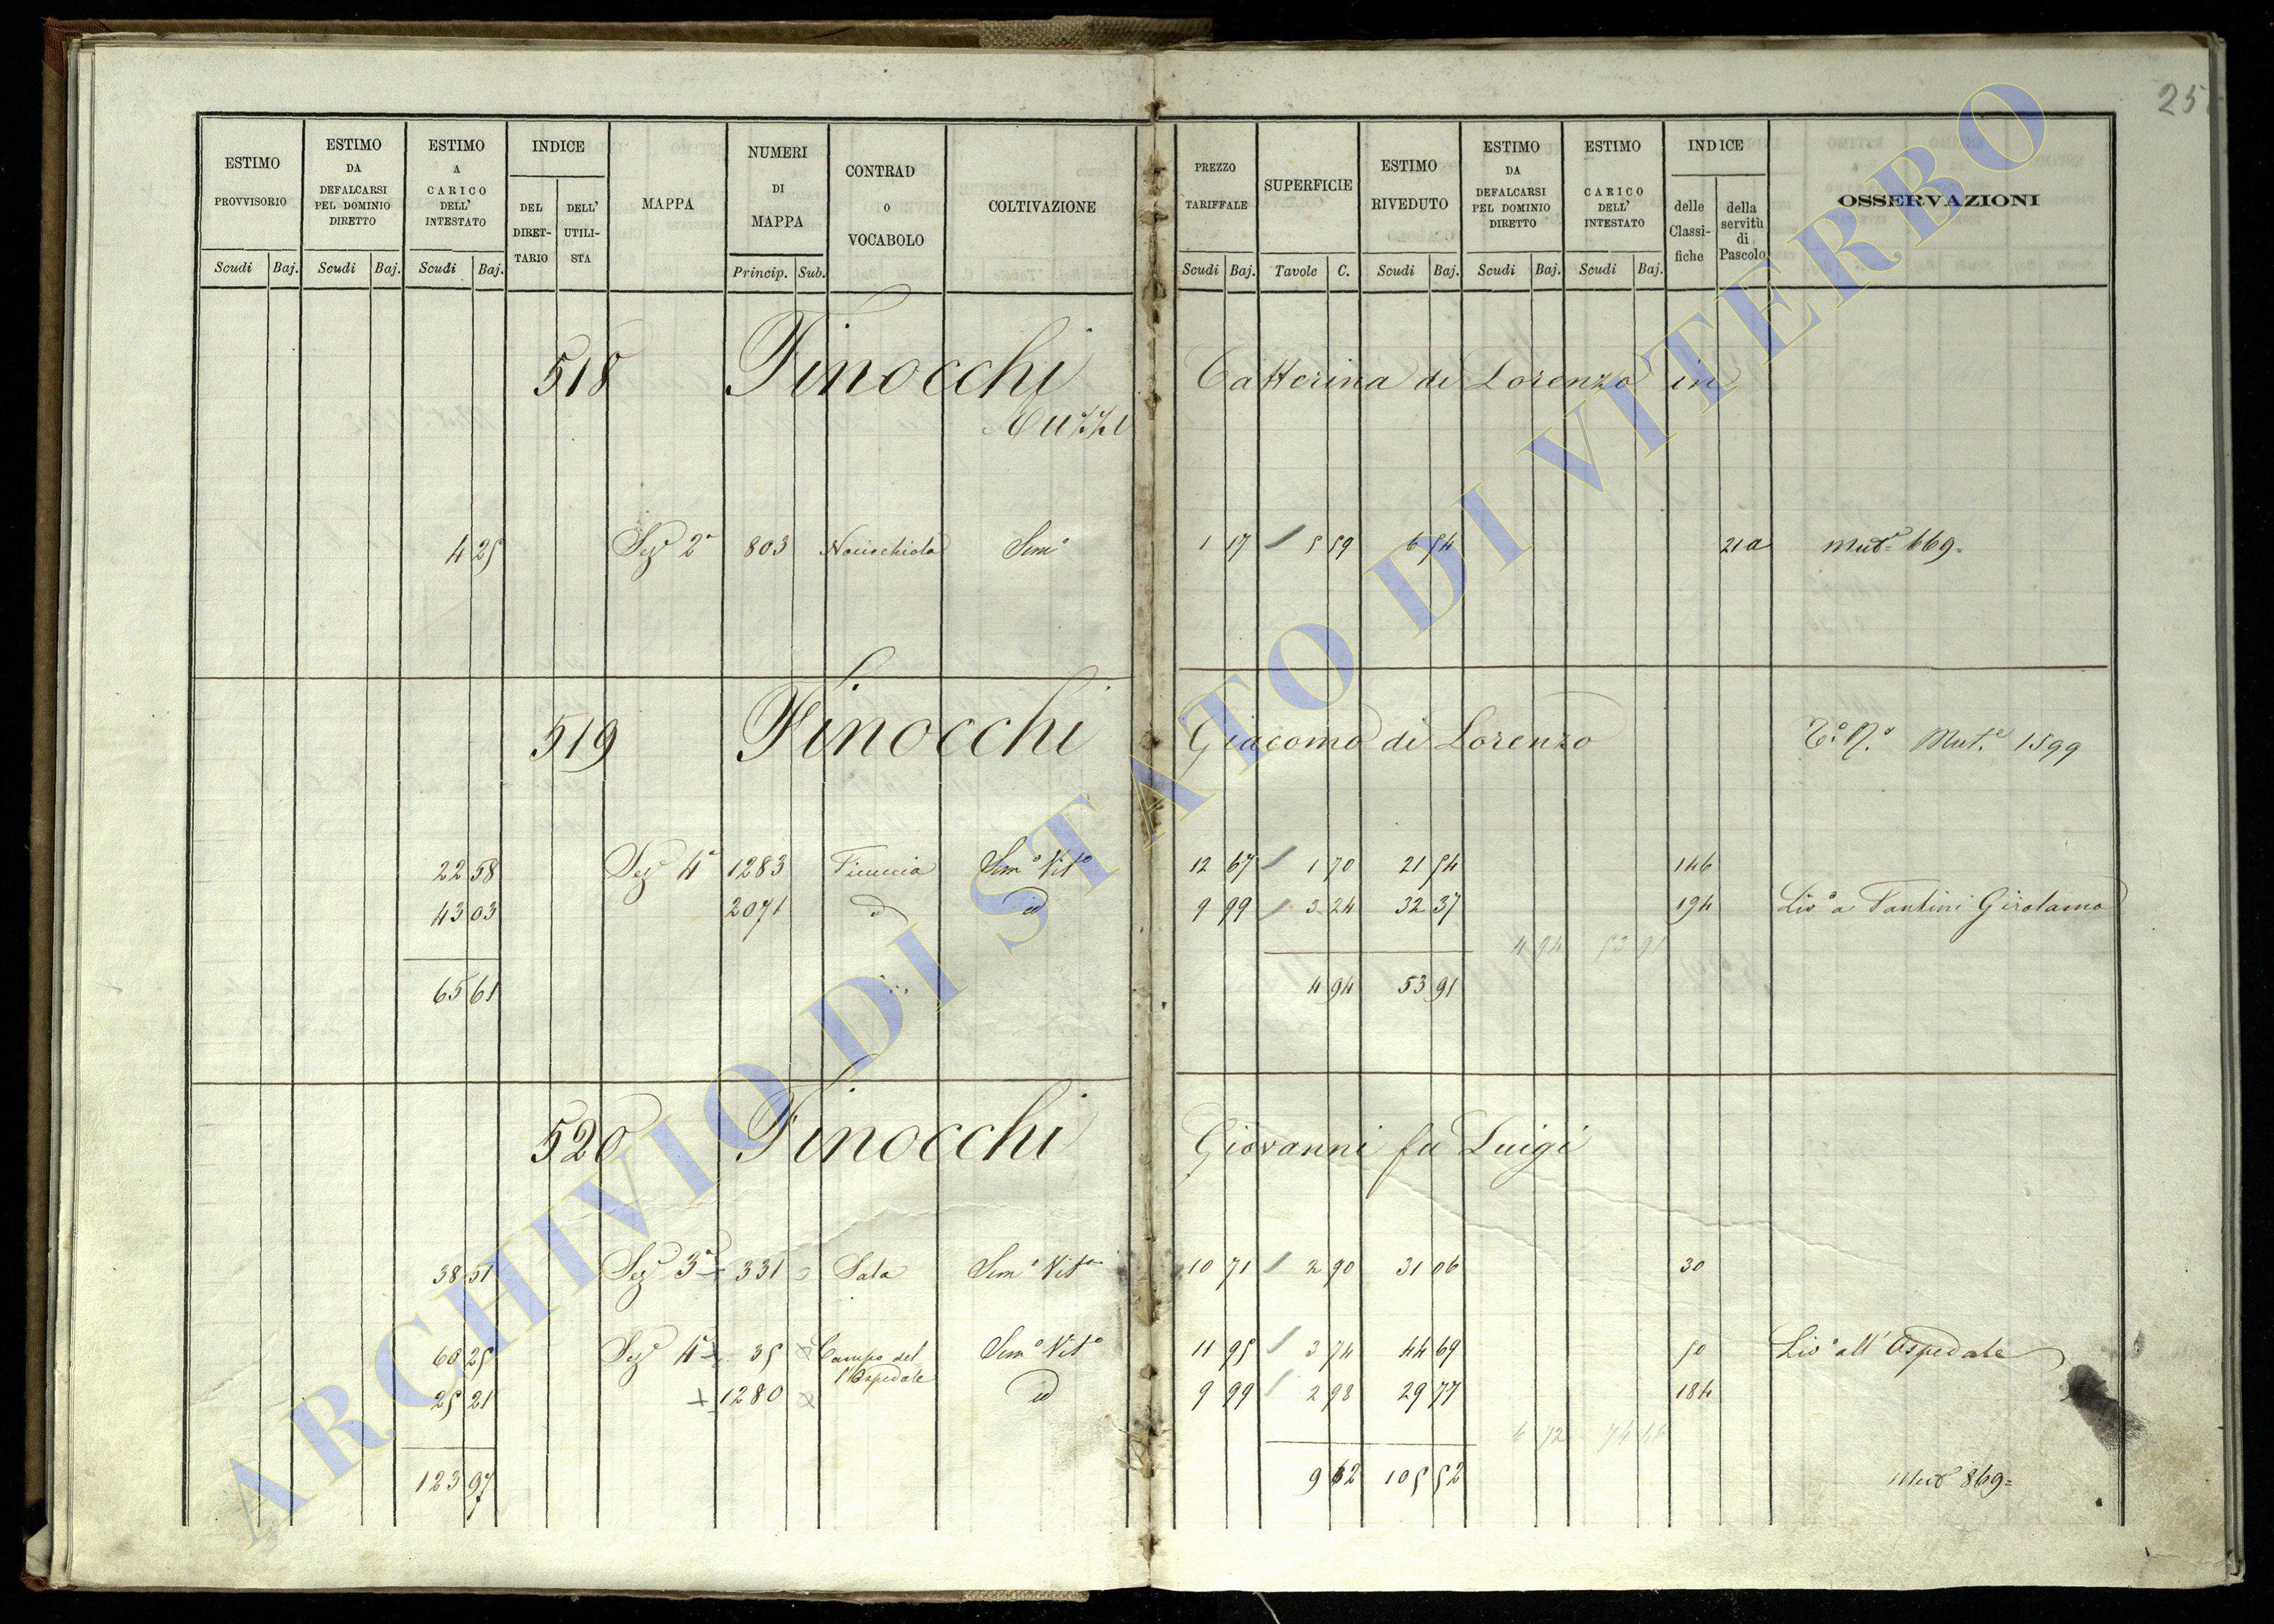 25
ESTIMO PROVVISORIO
ESTIMO DA DEFALCARSI PEL DOMINIO DIRETTO
ESTIMO A CARICO DELL' INTESTATO
INDICE
DEL DIRET-TARIO
DELL' UTILI-STA
MAPPA
NUMERI DI MAPPA
CONTRAD o VOCABOLO
COLTIVAZIONE
PREZZO TARIFFALE
SUPERFICIE
ESTIMO RIVEDUTO
ESTIMO DA DEFALCARSI PEL DOMINIO DIRETTO
ESTIMO CARICO DELL' INTESTATO
INDICE
delle Classi-fiche
della servitù di Pascolo
OSSERVAZIONI
Scudi Baj. Scudi Baj. Scudi Baj. Princip. Sub. Scudi Baj. Tavole C. Scudi Baj. Scudi Baj. Scudi Baj.
518 Finocchi Catterina di Lorenzo in
4 25 Sezᵉ 2ᵃ 803 Semᵒ 1 17 5 59 6 54 21a Mutᵃ 669
519 Finocchi Giacomo di Lorenzo Mut.ᵉ 1599
22 58 Sezᵉ 4ᵃ 1283 Ficuccia Semᵒ Vitᵒ 12 67 1 70 21 54 146
43 03 2071 id 9 99 3 24 32 37 194 Livᵒ a Fantini Girolamo
4 94 53 91
65 61 4 94 53 91
520 Finocchi Giovanni fu Luigi
38 51 Sezᵉ 3ᵃ 331 Sala Semᵒ Vitᵒ 10 71 2 90 31 06 30
60 25 Sezᵉ 4ᵃ 35 Campo del Semᵒ Vitᵒ 11 95 3 74 44 69 50 Livᵒ all' Ospedale
l'Ospedale
25 21 1280 id 9 99 2 98 29 77 184
6 72 74 46
123 97 9 62 105 52 Mutᵃ 869
ARCHIVIO DI STATO DI VITERBO